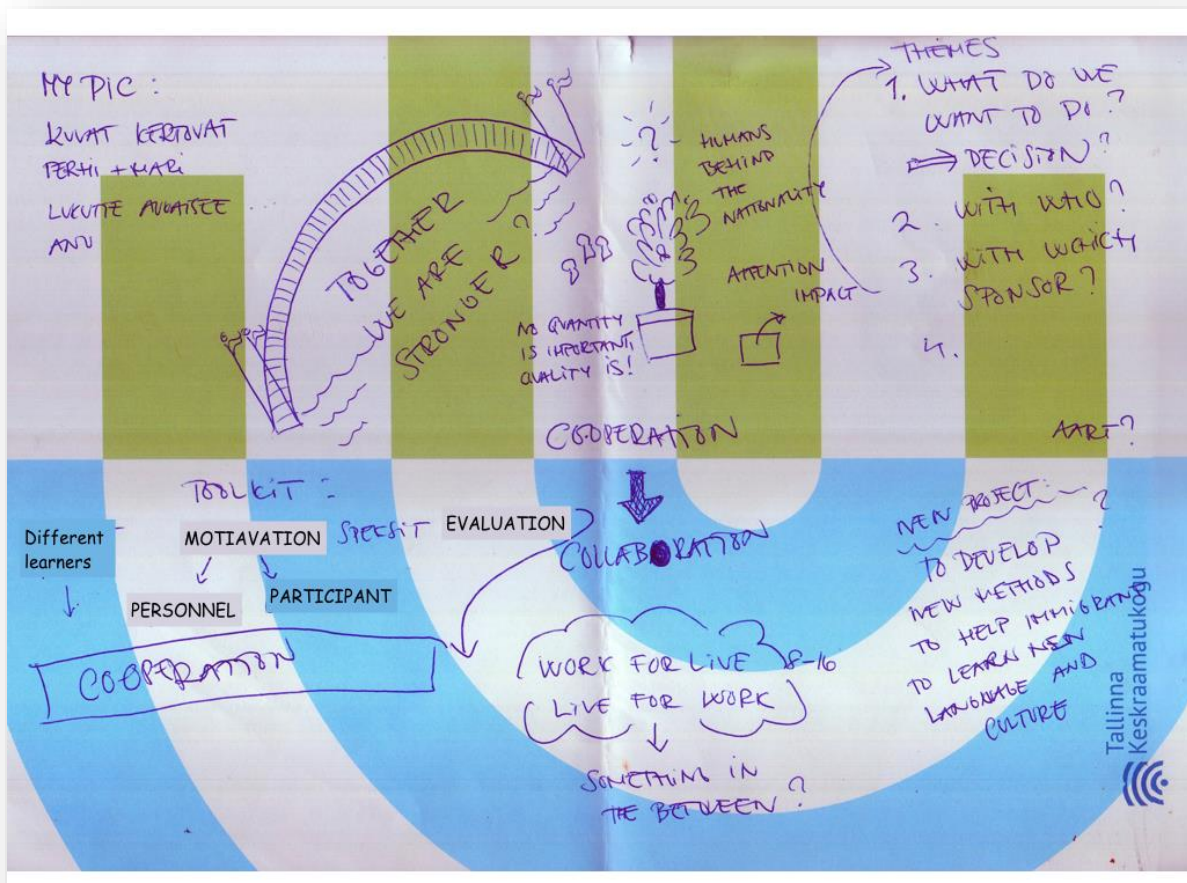 MY PIC :
KUVAT KERTOVAT
PERTTI + MARI
ANU
TOGETHER
WE ARE
STRONGER ?
?
HUMANS
BEHIND
THE
NATIONALITY
ATTENTION
IMPACT
NO QUANTITY
IS IMPORTANT,
QUALITY IS!
THEMES
1. WHAT DO WE
WANT TO DO ?
DECISION ?
2. WITH WHO ?
3. WITH WHICH
SPONSOR ?
4.
AART ?
COOPERATION
COLLABORATION
TOOLKIT :
Different
learners
MOTIAVATION
EVALUATION
PERSONNEL
PARTICIPANT
COOPERATION
WORK FOR LIVE 8-16
LIVE FOR WORK
SOMETHING IN
THE BETWEEN ?
NEW PROJECT : ?
TO DEVELOP
NEW METHODS
TO HELP IMMIGRANTS
TO LEARN NEW
LANGUAGE AND
CULTURE
Tallinna
Keskraamatukogu